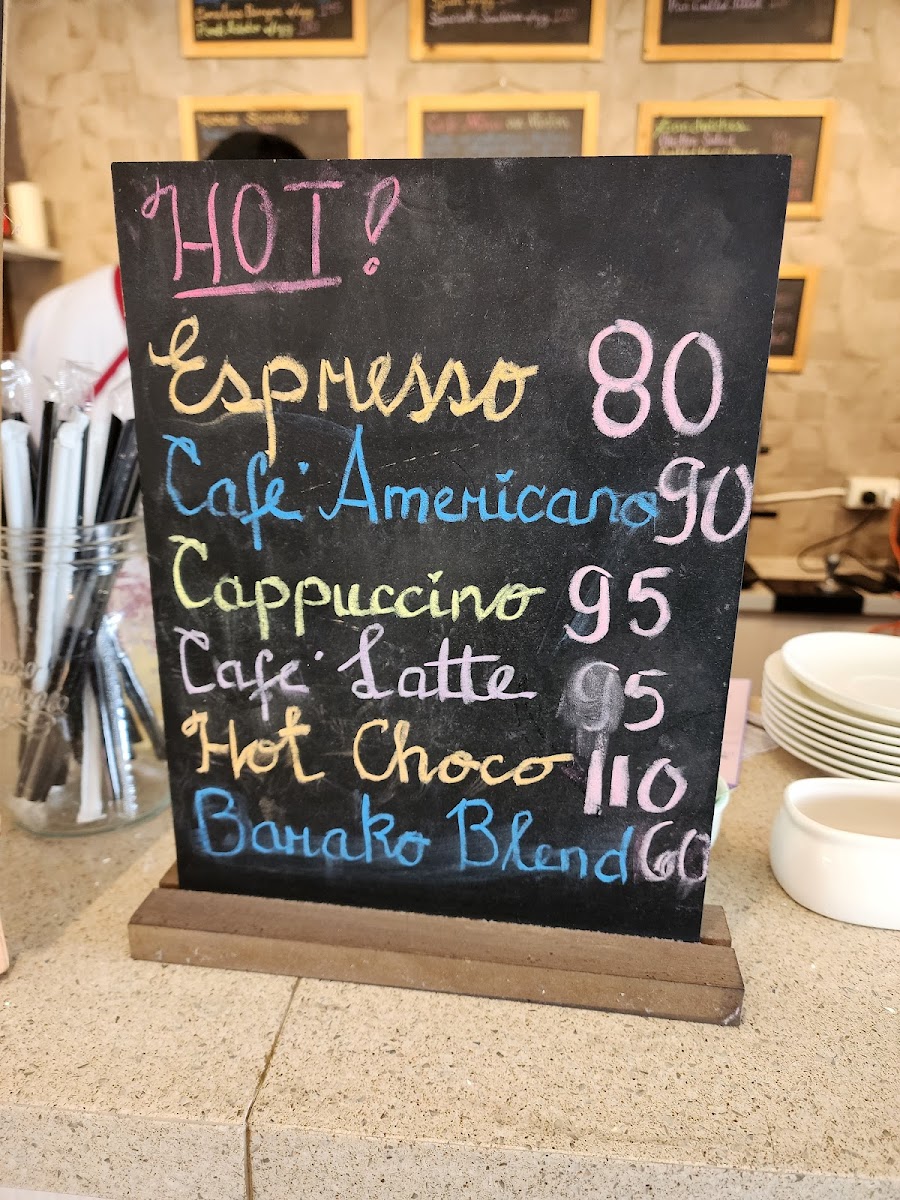 HOT!
Espresso 80
Café Americano 90
Cappuccino 95
Café Latte 95
Hot Choco 110
Barako Blend 60